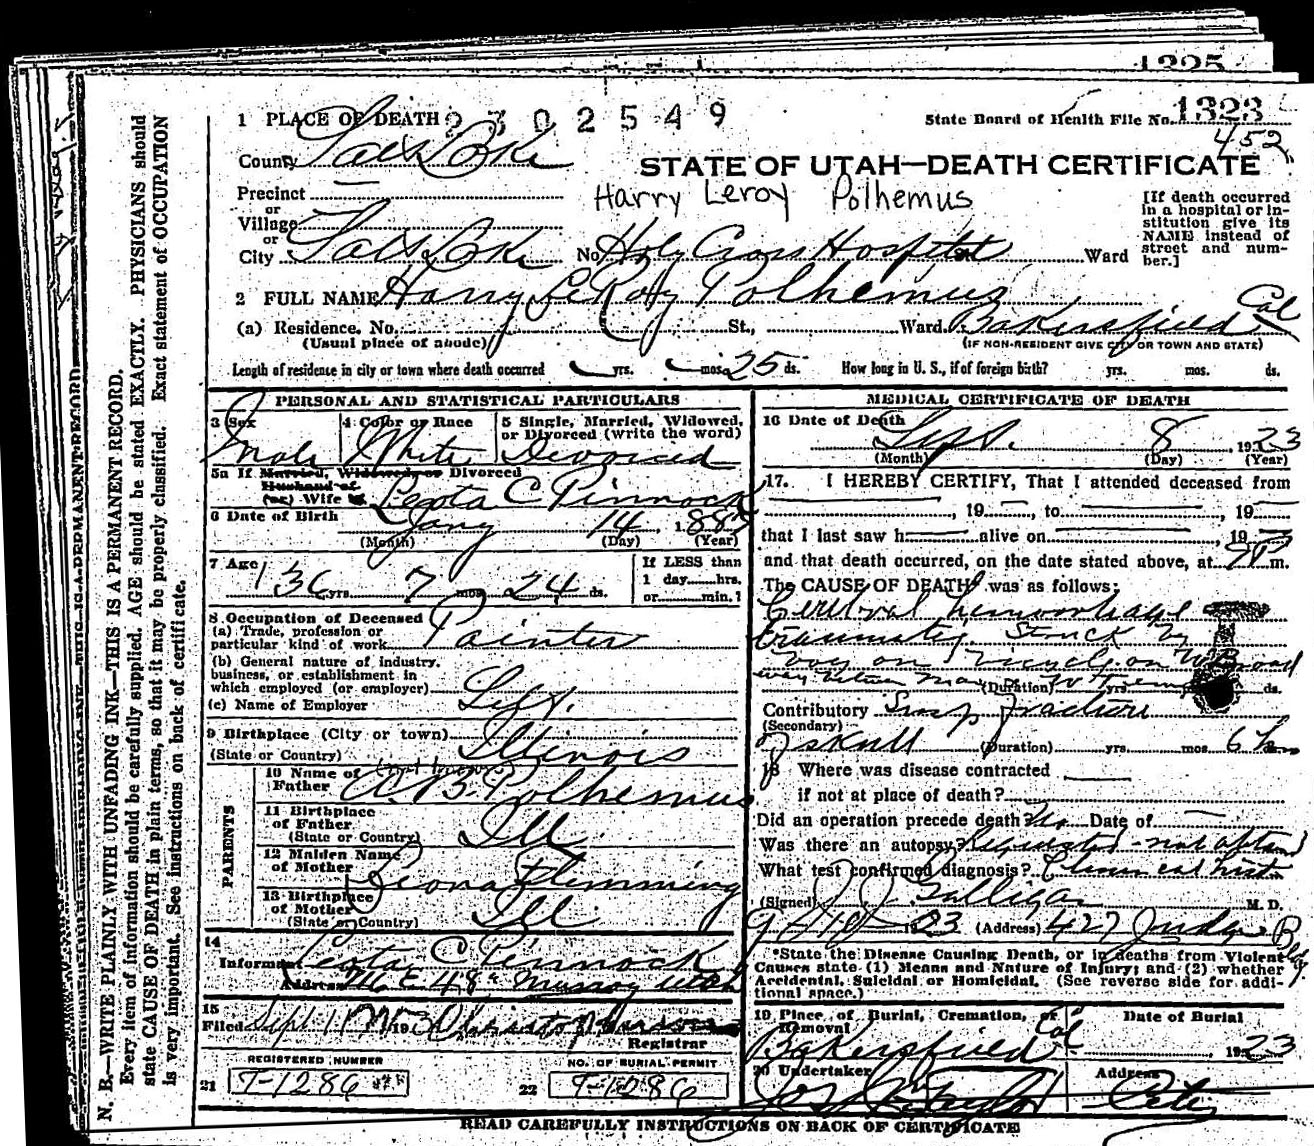 1325
1 PLACE OF DEATH 2302549 State Board of Health File No. 1323
452
County Salt Lake
STATE OF UTAH—DEATH CERTIFICATE
Harry Leroy Polhemus
Precinct
or
Village
or
City Salt Lake No. Holy Cross Hospital Ward
[If death occurred
in a hospital or in-
stitution give its
NAME instead of
street and num-
ber.]
2 FULL NAME Harry LeRoy Polhemus
(a) Residence. No. St., Ward. Bakersfield Cal
(Usual place of abode) (IF NON-RESIDENT GIVE CITY OR TOWN AND STATE)
Length of residence in city or town where death occurred yrs. mos. 25 ds. How long in U. S., if of foreign birth? yrs. mos. ds.
PERSONAL AND STATISTICAL PARTICULARS
3 Sex 4 Color or Race 5 Single, Married, Widowed,
or Divorced (write the word)
Male White Divorced
5a If Married, Widowed or Divorced
Husband of
(or) Wife Leota C Pinnock
6 Date of Birth Jany 14, 188
(Month) (Day) (Year)
7 Age 36 yrs 7 mos 24 ds.
If LESS than
1 day......hrs.
or......min.?
8 Occupation of Deceased
(a) Trade, profession or
particular kind of work Painter
(b) General nature of industry,
business, or establishment in
which employed (or employer)
(c) Name of Employer
9 Birthplace (City or town)
(State or Country) Illinois
PARENTS
10 Name of
Father A. B. Polhemus
11 Birthplace
of Father
(State or Country) Ill.
12 Maiden Name
of Mother Leona Flemming
13 Birthplace
of Mother
(State or Country) Ill.
14
Informant Leota C Pinnock
Address E 48 Murray Utah
15
Filed Sept 11 1923
Registrar
REGISTERED NUMBER NO. OF BURIAL PERMIT
21 T-1286 22 T-1286
MEDICAL CERTIFICATE OF DEATH
16 Date of Death
Sept. 8, 1923
(Month) (Day) (Year)
17. I HEREBY CERTIFY, That I attended deceased from
, 19 , to , 19
that I last saw h alive on , 19
and that death occurred, on the date stated above, at 9 P m.
The CAUSE OF DEATH was as follows:
Cerebral hemorrhage
traumatic. Struck by
boy on bicycle on
(Duration) yrs. ds.
Contributory fracture
(Secondary)
of skull (Duration) yrs. mos. 6 hrs
18 Where was disease contracted
if not at place of death?
Did an operation precede death? No. Date of
Was there an autopsy? Requested - not obtained
What test confirmed diagnosis? Clinical hist.
(Signed) J. J. Galligan M. D.
9-10 1923 (Address) 427 Judge Bldg
*State the Disease Causing Death, or in deaths from Violent
Causes state (1) Means and Nature of Injury; and (2) whether
Accidental, Suicidal or Homicidal. (See reverse side for addi-
tional space.)
19 Place of Burial, Cremation, or Removal Date of Burial
Bakersfield Cal 1923
20 Undertaker Address
Jos Wm Taylor City
READ CAREFULLY INSTRUCTIONS ON BACK OF CERTIFICATE
N. B.—WRITE PLAINLY WITH UNFADING INK—THIS IS A PERMANENT RECORD.
Every item of information should be carefully supplied. AGE should be stated EXACTLY. PHYSICIANS should
state CAUSE OF DEATH in plain terms, so that it may be properly classified. Exact statement of OCCUPATION
is very important. See instructions on back of certificate.